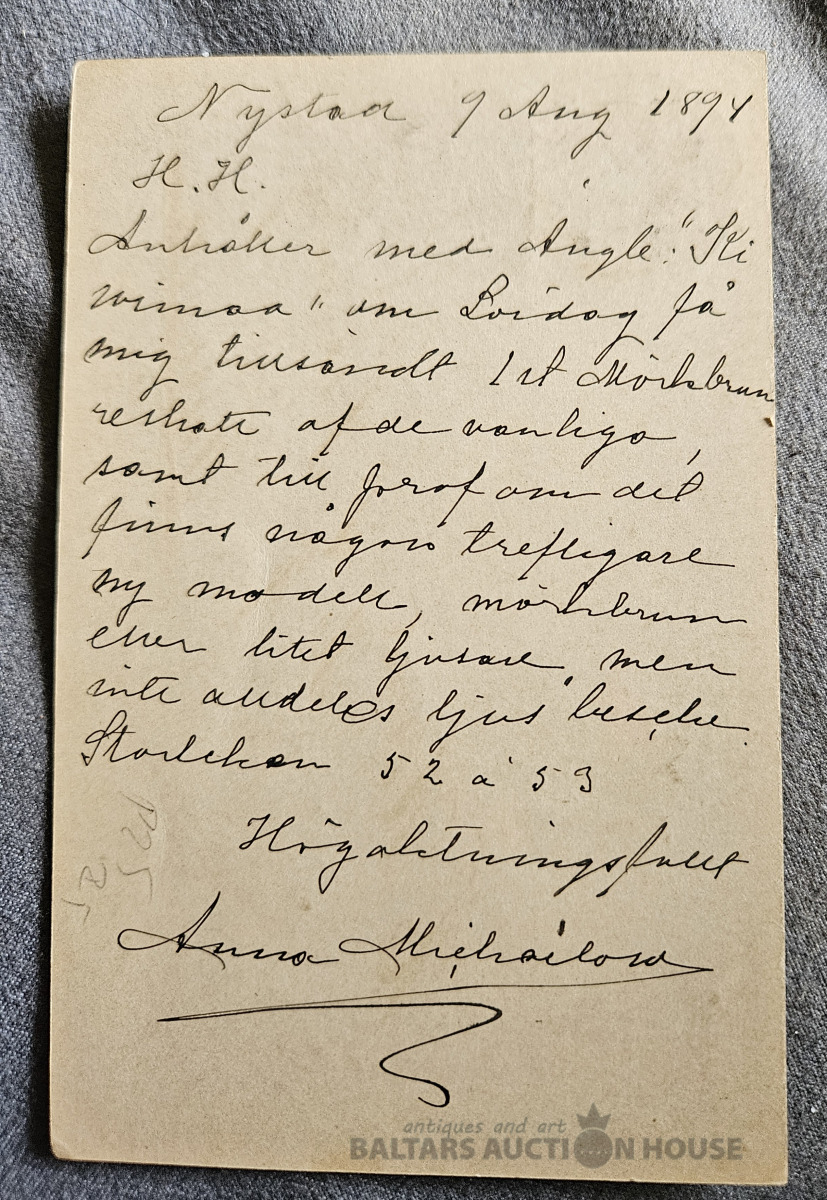 Nystad 9 Aug 1894
H. H.
Anhåller med Ångf. "Ki
vimaa" om Lördag få
mig tillsändt 1 st Mörkbrun
reshatt af de vanliga,
samt till prof om det
finns någon trefligare
ny modell, mörkbrun
eller litet ljusare, men
inte alldeles ljus besche.
Storleken 52 à 53
Högaktningsfullt
Anna Michailow
52
antiques and art
BALTARS AUCTION HOUSE